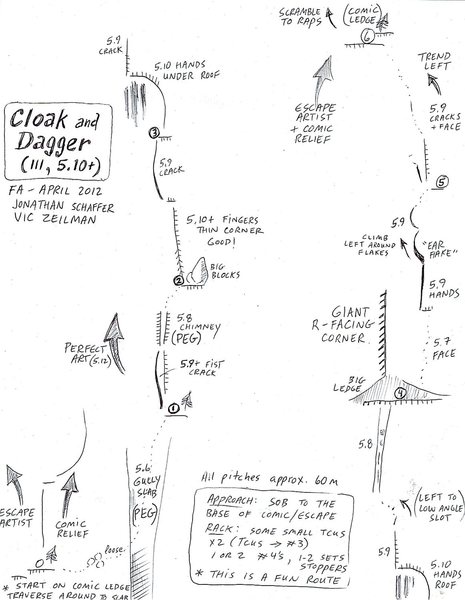 Cloak and
Dagger
(III, 5.10+)
FA - APRIL 2012
JONATHAN SCHAFFER
VIC ZEILMAN
5.9
CRACK
5.10 HANDS
UNDER ROOF
3
5.9
CRACK
5.10+ FINGERS
THIN CORNER
GOOD!
BIG
BLOCKS
2
5.8
CHIMNEY
(PEG)
PERFECT
ART (5.12)
5.9+ FIST
CRACK
1
5.6
GULLY
SLAB
(PEG)
ESCAPE
ARTIST
COMIC
RELIEF
loose
* START ON COMIC LEDGE
TRAVERSE AROUND TO SLAB
SCRAMBLE
TO RAPS
(COMIC
LEDGE)
6
TREND
LEFT
ESCAPE
ARTIST
+ COMIC
RELIEF
5.9
CRACKS
+ FACE
5
5.9
CLIMB
LEFT AROUND
FLAKES
"EAR
FLAKE"
5.9
HANDS
GIANT
R-FACING
CORNER
5.7
FACE
BIG
LEDGE
4
5.8
(LEFT TO
LOW ANGLE
SLOT)
5.9
5.10
HANDS
ROOF
All pitches approx. 60m
APPROACH: SOB TO THE
BASE OF COMIC/ESCAPE
RACK: SOME SMALL TCUS
X2 (TCUS → #3)
1 OR 2 #4'S, 1-2 SETS
STOPPERS
* THIS IS A FUN ROUTE